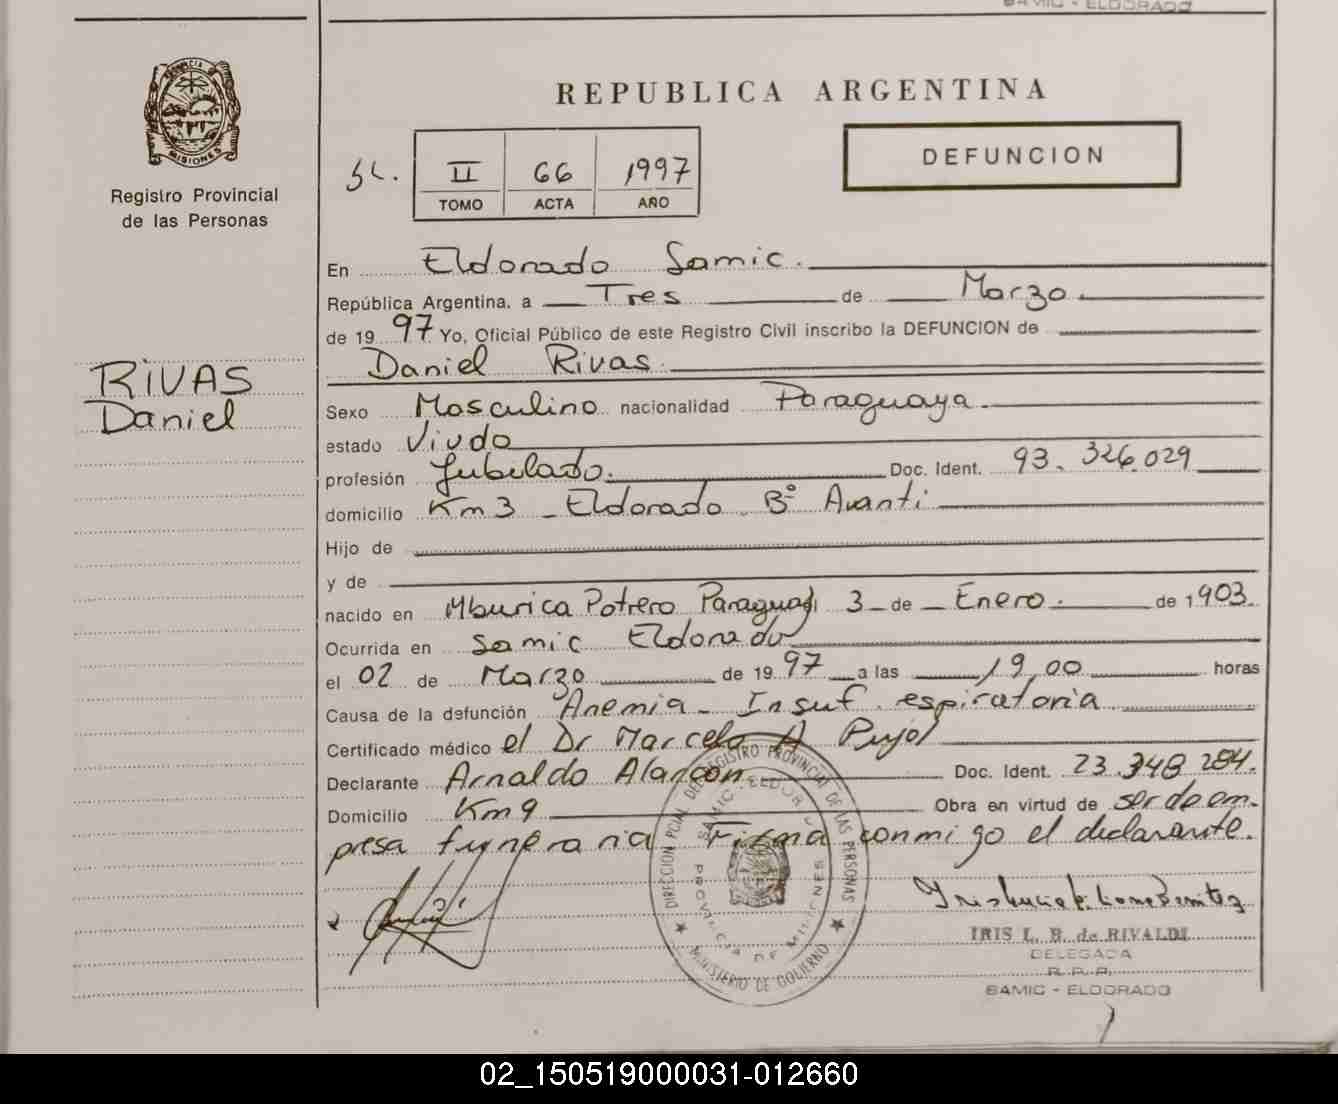 SAMIC - ELDORADO
PROVINCIA DE
MISIONES
Registro Provincial
de las Personas
RIVAS
Daniel
REPUBLICA ARGENTINA
II 66 1997
TOMO ACTA AÑO
DEFUNCION
En Eldorado Samic.
República Argentina, a Tres de Marzo.
de 19 97 Yo, Oficial Público de este Registro Civil inscribo la DEFUNCION de
Daniel Rivas.
Sexo Masculino nacionalidad Paraguaya.
estado Viudo
profesión Jubilado. Doc. Ident. 93.326.029
domicilio Km 3 - Eldorado - Bº Avanti
Hijo de
y de
nacido en Mburica Potrero Paraguay 3 - de - Enero. de 1903.
Ocurrida en Samic Eldorado
el 02 de Marzo de 19 97 a las 19,00 horas
Causa de la defunción Anemia - Insuf. espiratoria
Certificado médico el Dr Marcelo A Pujol
Declarante Arnaldo Alarcon Doc. Ident. 23.348.284.
Domicilio Km 9 Obra en virtud de ser de em-
presa funeraria Firma conmigo el declarante.
DIRECCION PCIAL DEL REGISTRO PROVINCIAL DE LAS PERSONAS
SAMIC - ELDORADO
PROVINCIA DE MISIONES
MINISTERIO DE GOBIERNO
IRIS L. B. de RIVALDI
DELEGADA
R. P. P.
SAMIC - ELDORADO
02_150519000031-012660